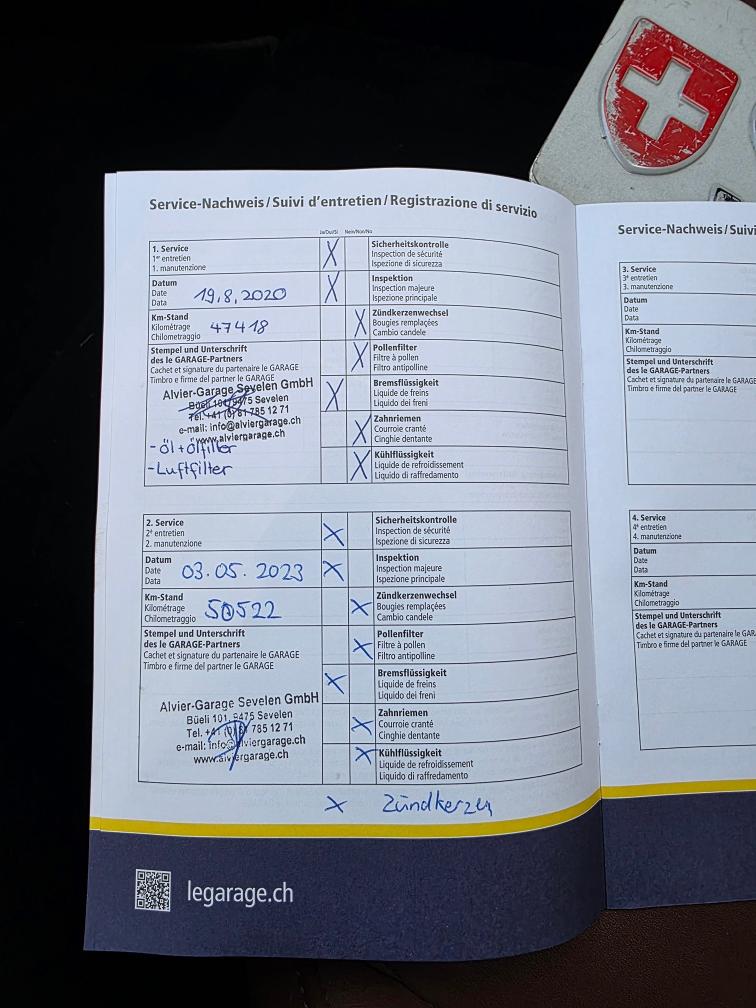 Service-Nachweis/Suivi d'entretien/Registrazione di servizio
Ja/Oui/Si Nein/Non/No
1. Service
1er entretien
1. manutenzione
X
Sicherheitskontrolle
Inspection de sécurité
Ispezione di sicurezza
Datum
Date
Data
19.8.2020
X
Inspektion
Inspection majeure
Ispezione principale
Km-Stand
Kilométrage
Chilometraggio
47418
X
Zündkerzenwechsel
Bougies remplaçées
Cambio candele
Stempel und Unterschrift
des le GARAGE-Partners
Cachet et signature du partenaire le GARAGE
Timbro e firme del partner le GARAGE
Alvier-Garage Sevelen GmbH
Büeli 101, 9475 Sevelen
Tel. +41 (0)81 785 12 71
e-mail: info@alviergarage.ch
www.alviergarage.ch
- Öl + Ölfilter
- Luftfilter
X
Pollenfilter
Filtre à pollen
Filtro antipolline
X
Bremsflüssigkeit
Liquide de freins
Liquido dei freni
X
Zahnriemen
Courroie cranté
Cinghie dentante
X
Kühlflüssigkeit
Liquide de refroidissement
Liquido di raffredamento
2. Service
2e entretien
2. manutenzione
X
Sicherheitskontrolle
Inspection de sécurité
Ispezione di sicurezza
Datum
Date
Data
03.05.2023
X
Inspektion
Inspection majeure
Ispezione principale
Km-Stand
Kilométrage
Chilometraggio
50522
X
Zündkerzenwechsel
Bougies remplaçées
Cambio candele
Stempel und Unterschrift
des le GARAGE-Partners
Cachet et signature du partenaire le GARAGE
Timbro e firme del partner le GARAGE
Alvier-Garage Sevelen GmbH
Büeli 101, 9475 Sevelen
Tel. +41 (0)81 785 12 71
e-mail: info@alviergarage.ch
www.alviergarage.ch
X
Pollenfilter
Filtre à pollen
Filtro antipolline
X
Bremsflüssigkeit
Liquide de freins
Liquido dei freni
X
Zahnriemen
Courroie cranté
Cinghie dentante
X
Kühlflüssigkeit
Liquide de refroidissement
Liquido di raffredamento
X Zündkerzen
legarage.ch
Service-Nachweis/Suivi
3. Service
3e entretien
3. manutenzione
Datum
Date
Data
Km-Stand
Kilométrage
Chilometraggio
Stempel und Unterschrift
des le GARAGE-Partners
Cachet et signature du partenaire le GARAGE
Timbro e firme del partner le GARAGE
4. Service
4e entretien
4. manutenzione
Datum
Date
Data
Km-Stand
Kilométrage
Chilometraggio
Stempel und Unterschrift
des le GARAGE-Partners
Cachet et signature du partenaire le GAR
Timbro e firme del partner le GARAGE